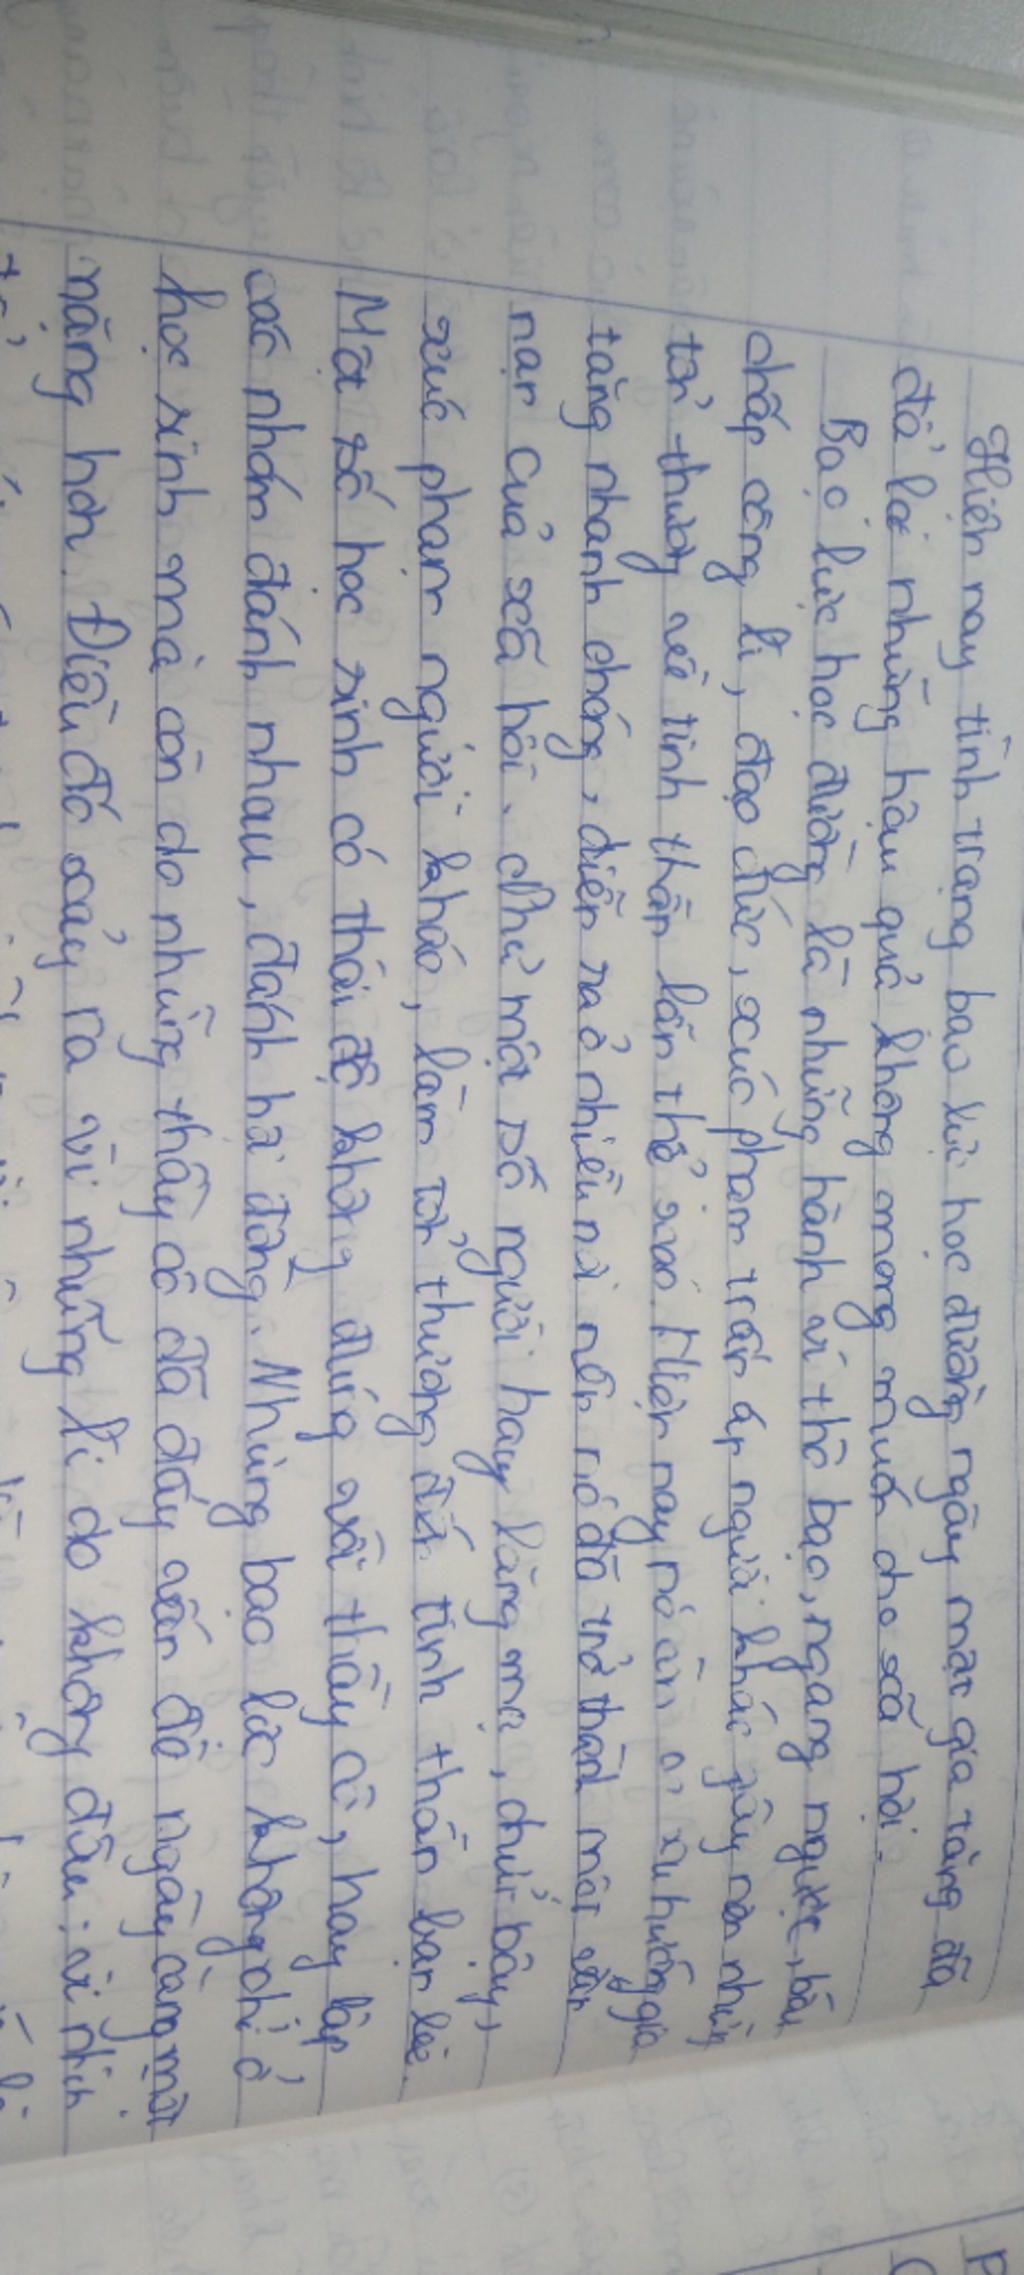 Hiện nay tình trạng bạo lực học đường ngày một gia tăng đã
để lại những hậu quả không mong muốn cho xã hội.
Bạo lực học đường là những hành vi thô bạo, ngang ngược, bất
chấp công lí, đạo đức, xúc phạm trấn áp người khác gây nên những
tổn thương về tinh thần lẫn thể xác. Hiện nay nó còn có xu hướng gia
tăng nhanh chóng, diễn ra ở nhiều nơi nên nó đã trở thành một vấn
nạn của xã hội. Như một số người hay lăng mạ, chửi bậy,
xúc phạm người khác, làm tổn thương đến tinh thần bạn bè.
Một số học sinh có thái độ không đúng với thầy cô, hay lập
các nhóm đánh nhau, đánh hội đồng. Nhưng bạo lực không chỉ ở
học sinh mà còn do những thầy cô đã đẩy vấn đề ngày càng một
nặng hơn. Điều đó xảy ra vì những lí do không đâu: vì